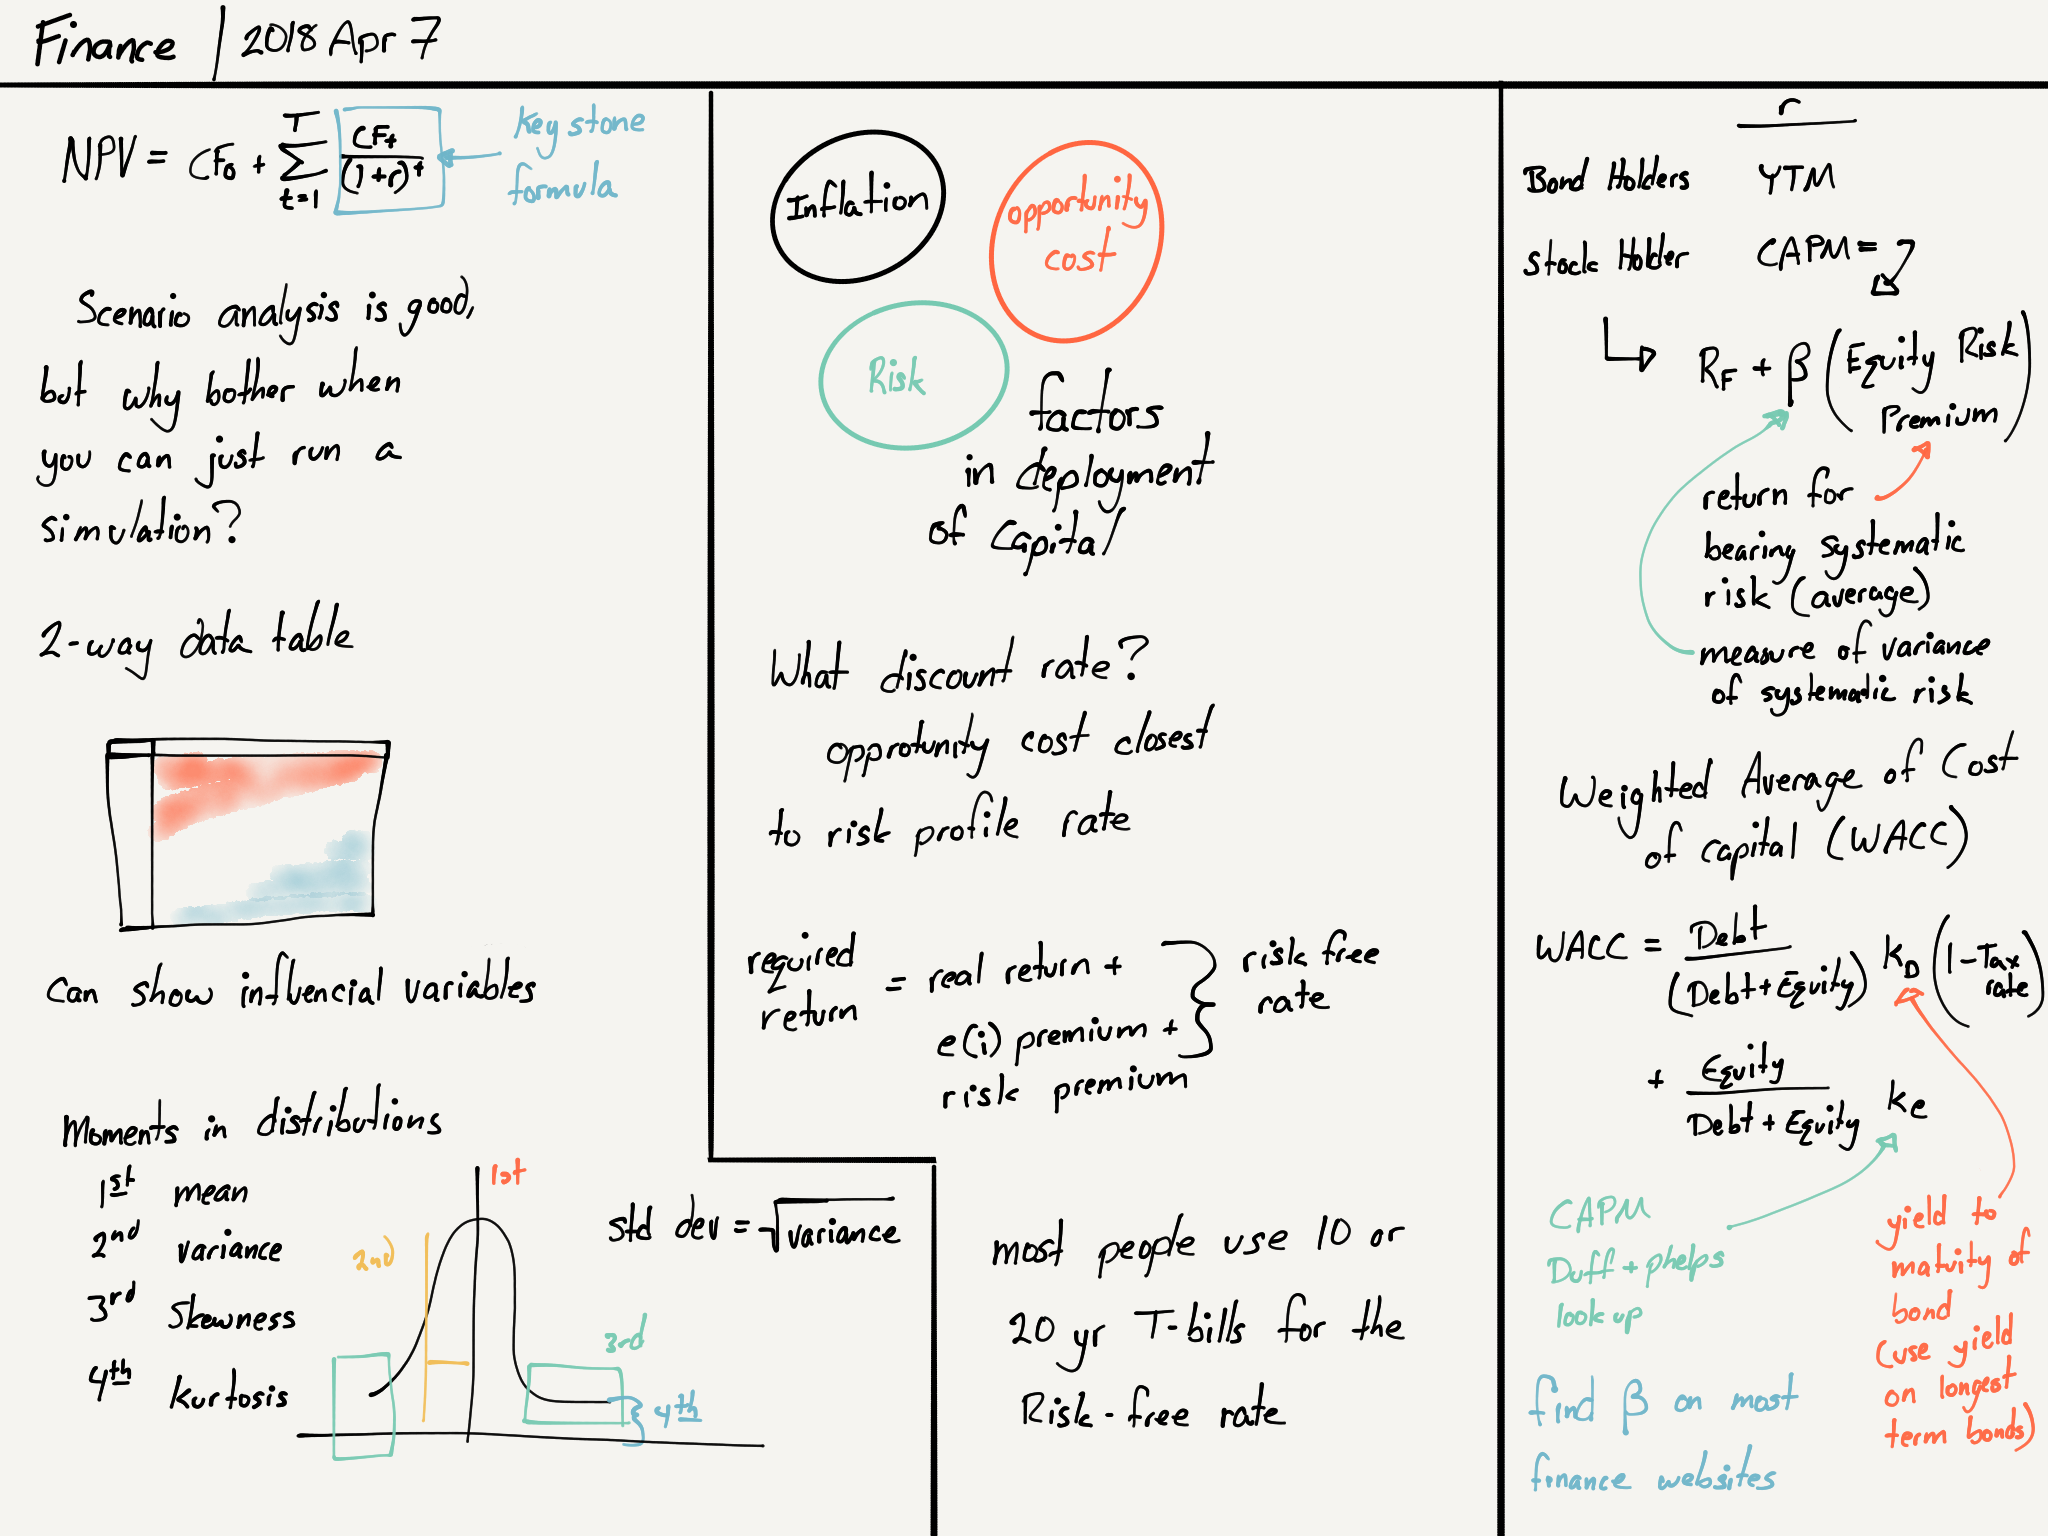 Finance | 2018 Apr 7
NPV = CF₀ + T Σ t=1 CFt/(1+r)^t
Key stone
formula
Scenario analysis is good,
but why bother when
you can just run a
simulation?
2-way data table
Can show influencial variables
Moments in distributions
1st mean
2nd variance
3rd Skewness
4th kurtosis
1st
2nd
3rd
4th
std dev = √variance
Inflation
opportunity
cost
Risk
factors
in deployment
of Capital
What discount rate?
opprotunity cost closest
to risk profile rate
required
return
= real return +
e(i) premium +
risk premium
risk free
rate
most people use 10 or
20 yr T-bills for the
Risk-free rate
r
Bond Holders YTM
Stock Holder CAPM =
RF + β (Equity Risk
Premium)
return for
bearing systematic
risk (average)
measure of variance
of systematic risk
Weighted Average of Cost
of capital (WACC)
WACC = Debt/(Debt+Equity) KD (1-Tax
rate)
+ Equity/Debt + Equity Ke
CAPM
Duff + phelps
look up
find β on most
finance websites
yield to
matuity of
bond
(use yield
on longest
term bonds)